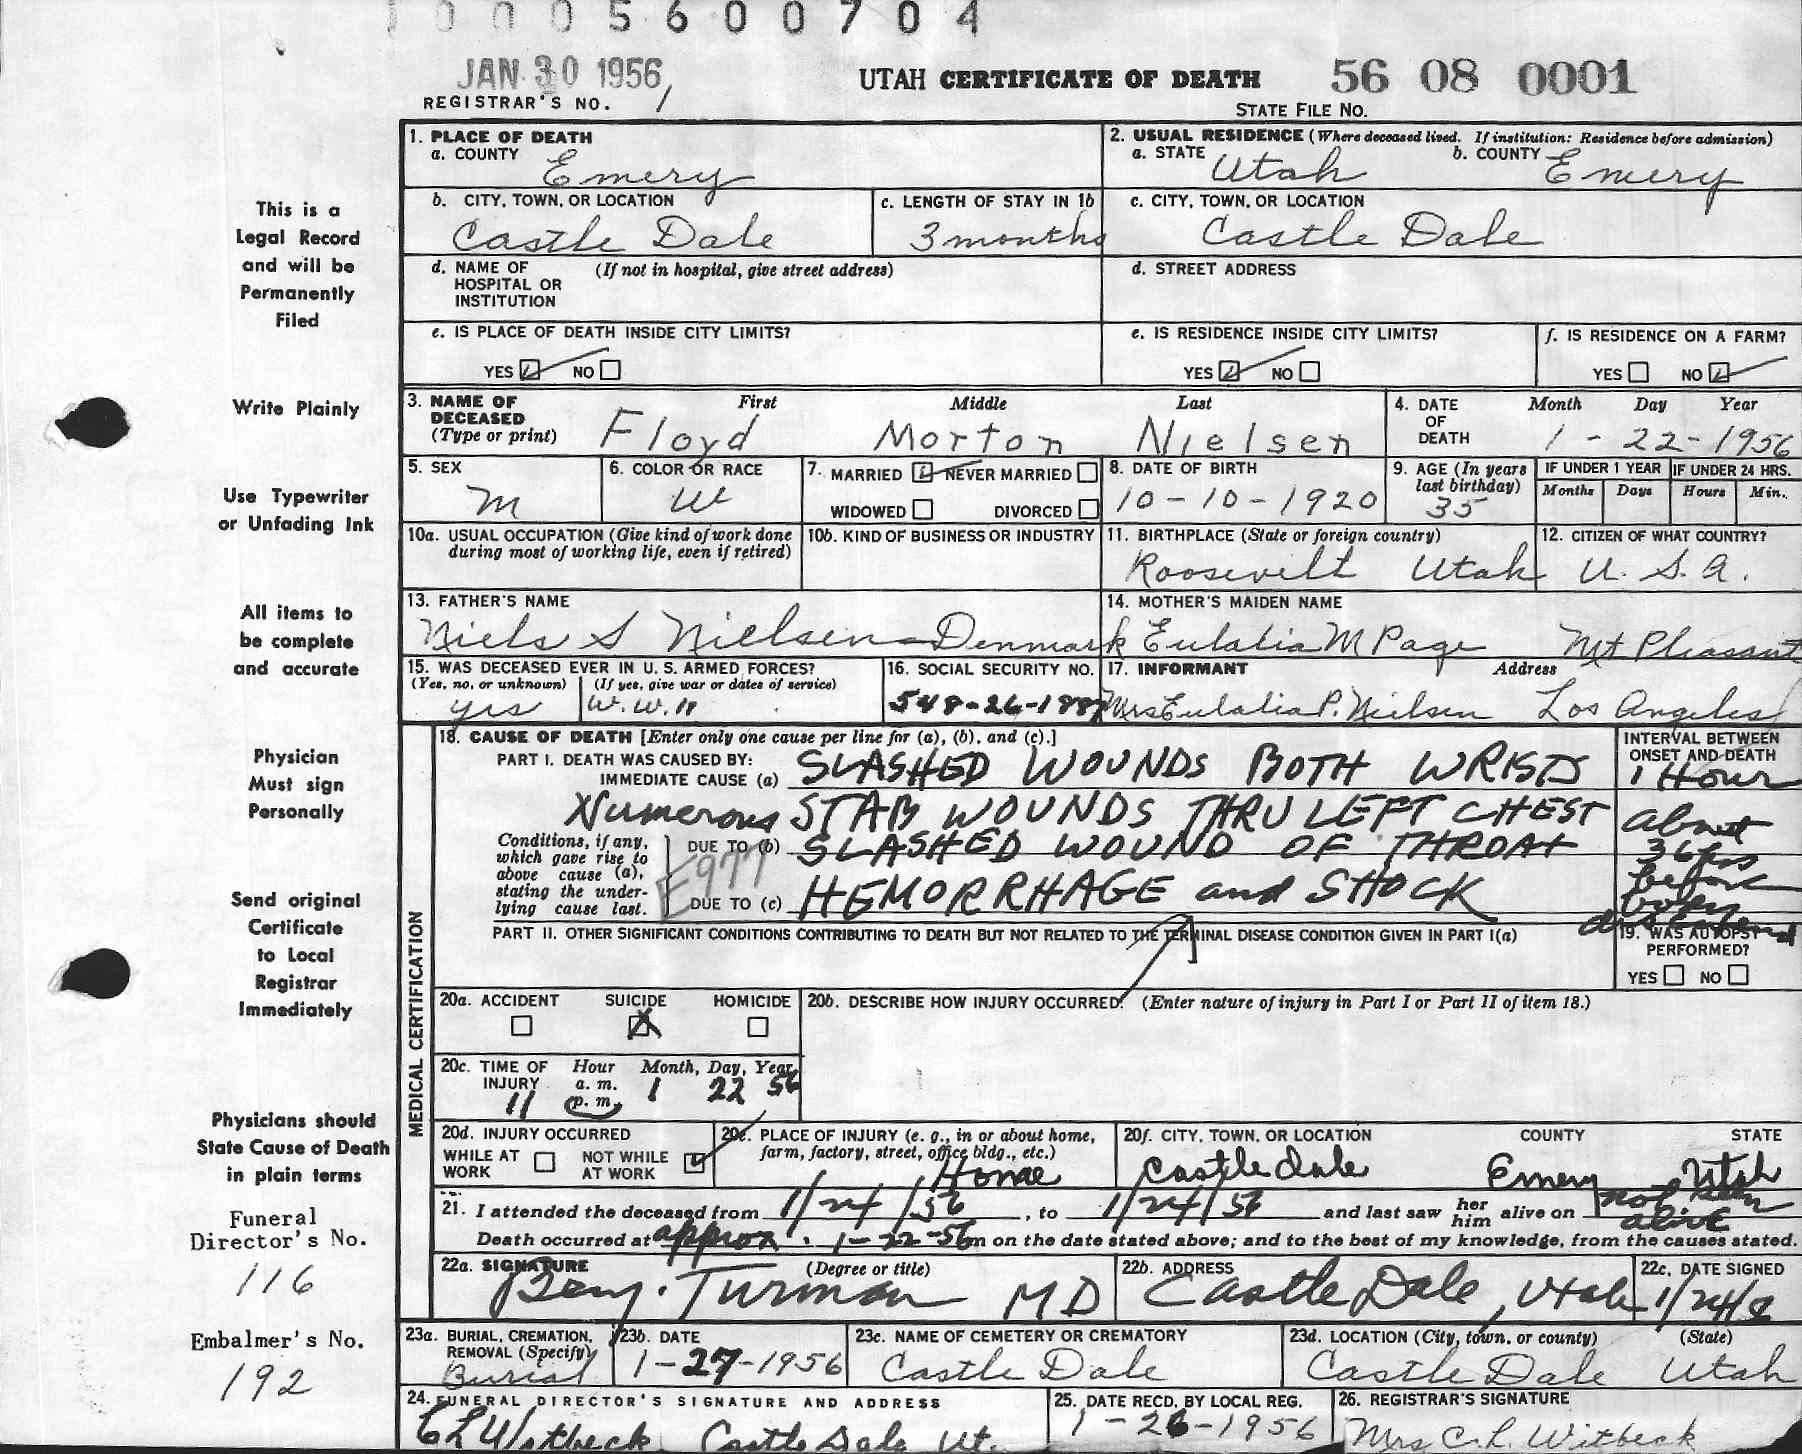 0005600704
JAN 30 1956
UTAH CERTIFICATE OF DEATH 56 08 0001
REGISTRAR'S NO. 1
STATE FILE NO.
This is a
Legal Record
and will be
Permanently
Filed
Write Plainly
Use Typewriter
or Unfading Ink
All items to
be complete
and accurate
Physician
Must sign
Personally
Send original
Certificate
to Local
Registrar
Immediately
Physicians should
State Cause of Death
in plain terms
Funeral
Director's No.
116
Embalmer's No.
192
1. PLACE OF DEATH
a. COUNTY Emery
2. USUAL RESIDENCE (Where deceased lived. If institution: Residence before admission)
a. STATE Utah b. COUNTY Emery
b. CITY, TOWN, OR LOCATION Castle Dale
c. LENGTH OF STAY IN 1b 3 months
c. CITY, TOWN, OR LOCATION Castle Dale
d. NAME OF HOSPITAL OR INSTITUTION (If not in hospital, give street address)
d. STREET ADDRESS
e. IS PLACE OF DEATH INSIDE CITY LIMITS?
YES NO
e. IS RESIDENCE INSIDE CITY LIMITS?
YES NO
f. IS RESIDENCE ON A FARM?
YES NO
3. NAME OF DECEASED (Type or print) First Middle Last
Floyd Morton Nielsen
4. DATE OF DEATH Month Day Year
1-22-1956
5. SEX M
6. COLOR OR RACE W
7. MARRIED NEVER MARRIED
WIDOWED DIVORCED
8. DATE OF BIRTH 10-10-1920
9. AGE (In years last birthday) 35
IF UNDER 1 YEAR Months Days
IF UNDER 24 HRS. Hours Min.
10a. USUAL OCCUPATION (Give kind of work done during most of working life, even if retired)
10b. KIND OF BUSINESS OR INDUSTRY
11. BIRTHPLACE (State or foreign country) Roosevelt Utah
12. CITIZEN OF WHAT COUNTRY? U. S. A.
13. FATHER'S NAME
Niels S Nielsen - Denmark
14. MOTHER'S MAIDEN NAME
Eulalia M Page Mt Pleasant
15. WAS DECEASED EVER IN U. S. ARMED FORCES?
(Yes, no, or unknown) (If yes, give war or dates of service)
yes W. W. II
16. SOCIAL SECURITY NO.
17. INFORMANT Address
Mrs Eulalia P. Nielsen Los Angeles
MEDICAL CERTIFICATION
18. CAUSE OF DEATH [Enter only one cause per line for (a), (b), and (c).]
PART I. DEATH WAS CAUSED BY:
IMMEDIATE CAUSE (a) SLASHED WOUNDS BOTH WRISTS
Numerous STAB WOUNDS THRU LEFT CHEST
Conditions, if any, which gave rise to above cause (a), stating the underlying cause last.
DUE TO (b) SLASHED WOUND OF THROAT
E977
DUE TO (c) HEMORRHAGE and SHOCK
INTERVAL BETWEEN ONSET AND DEATH
1 Hour
about
36 hrs
before
body
discovered
PART II. OTHER SIGNIFICANT CONDITIONS CONTRIBUTING TO DEATH BUT NOT RELATED TO THE TERMINAL DISEASE CONDITION GIVEN IN PART I(a)
19. WAS AUTOPSY PERFORMED?
YES NO
20a. ACCIDENT SUICIDE HOMICIDE
X
20b. DESCRIBE HOW INJURY OCCURRED. (Enter nature of injury in Part I or Part II of item 18.)
20c. TIME OF INJURY Hour a. m. p. m. Month, Day, Year
11 1 22 56
20d. INJURY OCCURRED
WHILE AT WORK NOT WHILE AT WORK
20e. PLACE OF INJURY (e. g., in or about home, farm, factory, street, office bldg., etc.)
Home
20f. CITY, TOWN, OR LOCATION COUNTY STATE
Castle Dale Emery Utah
21. I attended the deceased from 1/24/56, to 1/24/56 and last saw her him alive on not seen alive
Death occurred at approx. 1-22-56 m on the date stated above; and to the best of my knowledge, from the causes stated.
22a. SIGNATURE (Degree or title)
Benj. Turman MD
22b. ADDRESS
Castle Dale, Utah
22c. DATE SIGNED
23a. BURIAL, CREMATION, REMOVAL (Specify)
Burial
23b. DATE
1-27-1956
23c. NAME OF CEMETERY OR CREMATORY
Castle Dale
23d. LOCATION (City, town, or county) (State)
Castle Dale Utah
24. FUNERAL DIRECTOR'S SIGNATURE AND ADDRESS
C L Witbeck Castle Dale Ut.
25. DATE RECD. BY LOCAL REG.
1-26-1956
26. REGISTRAR'S SIGNATURE
Mrs C. L. Witbeck